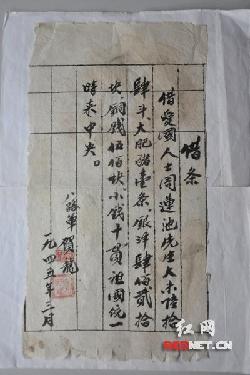 借条
借爱国人士周连池先生大米陆拾
肆斗、大肥猪壹条、银洋肆佰贰拾
块、铜钱伍佰块、小钱十贯、祖国统一
时来中央。
八路军 贺龙
一九四五年三月
红网
REDNET.CN